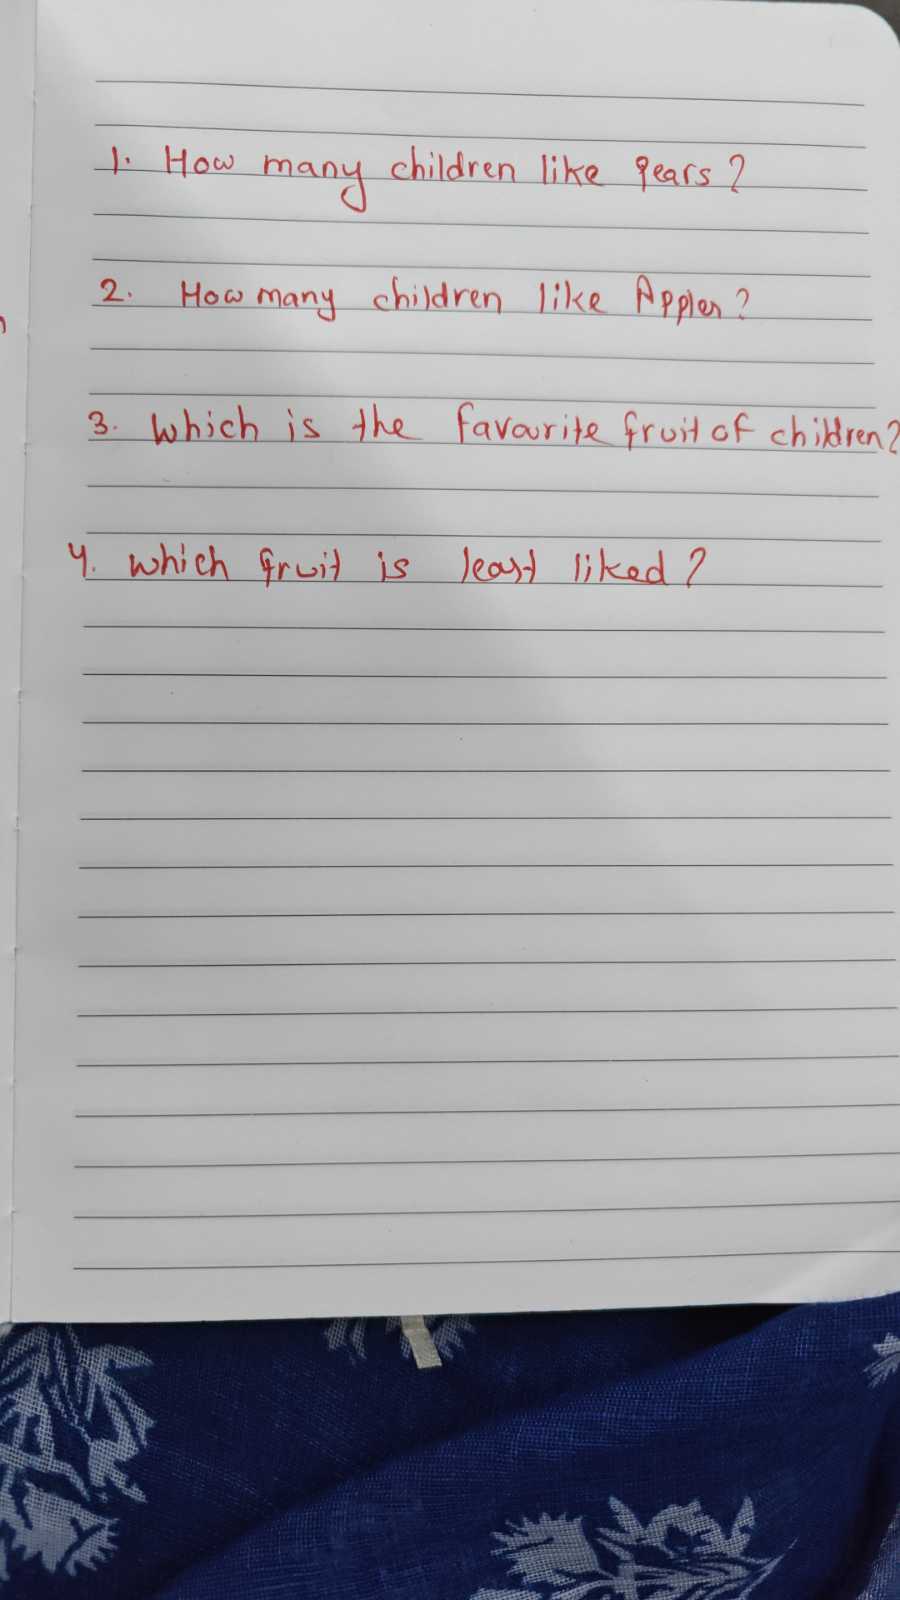 1. How many children like pears?
2. How many children like Apples?
3. Which is the favourite fruit of children?
4. which fruit is least liked?